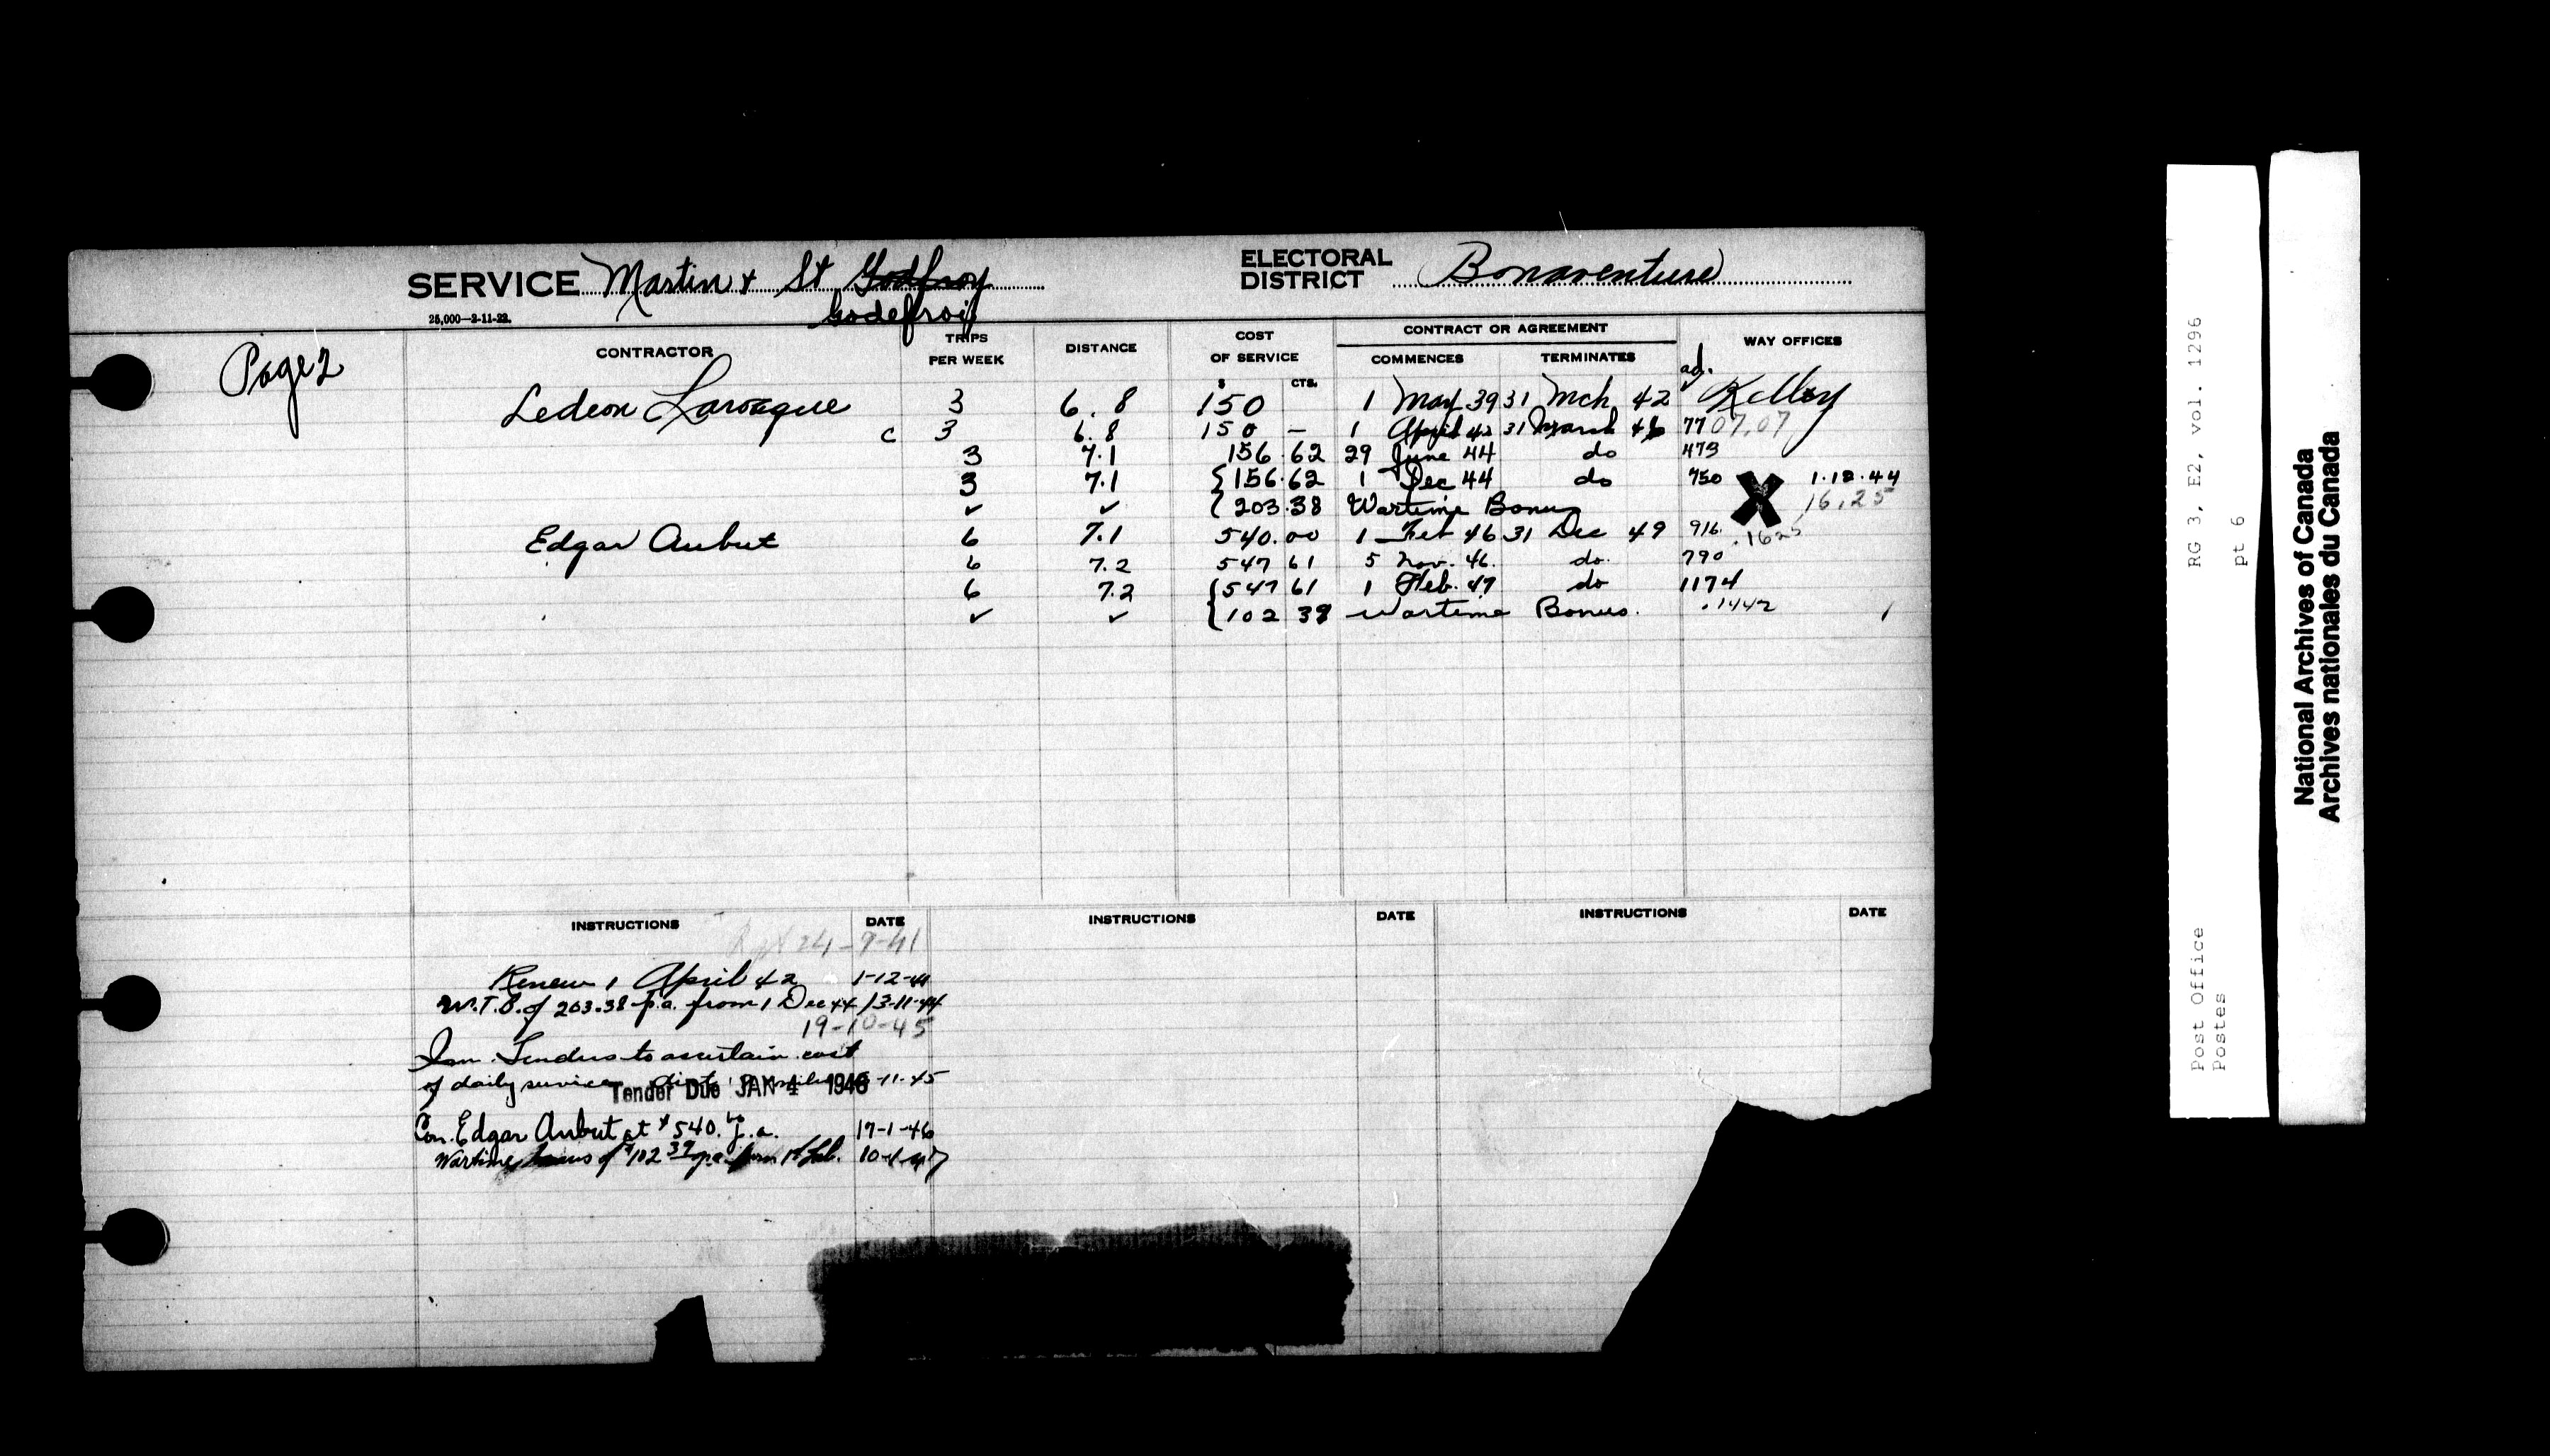 SERVICE Martin & St Godfroy
Godefroi
ELECTORAL DISTRICT Bonaventure
25,000—2-11-22.
Page 2
CONTRACTOR TRIPS PER WEEK DISTANCE COST OF SERVICE $ CTS. CONTRACT OR AGREEMENT COMMENCES TERMINATES WAY OFFICES
ad.
Ledeon Larocque 3 6.8 150 1 May 39 31 Mch 42 Kelley
c 3 6.8 150 — 1 April 42 31 March 46 77 07.07
3 7.1 156.62 29 June 44 do 473
3 7.1 {156.62 1 Dec 44 do 750 X 1.12.44
✓ ✓ {203.38 Wartime Bonus 16.25
Edgar Aubut 6 7.1 540.00 1 Feb 46 31 Dec 49 916 .1625
6 7.2 547 61 5 Nov. 46. do. 790
6 7.2 {547 61 1 Feb. 47 do 1174
✓ ✓ {102 39 Wartime Bonus. .1442
INSTRUCTIONS DATE INSTRUCTIONS DATE INSTRUCTIONS DATE
24-9-41
Renew 1 April 42 1-12-41
W.T.B. of 203.38 p.a. from 1 Dec 44 13-11-44
19-10-45
Tenders to ascertain cost
of daily service -11-45
Tender Due JAN 4 1946
Con. Edgar Aubut at $540.00 p.a. 17-1-46
Wartime bonus of $102 39 p.a. from 1st Feb. 10-1-47
RG 3, E2, vol. 1296
pt 6
Post Office
Postes
National Archives of Canada
Archives nationales du Canada